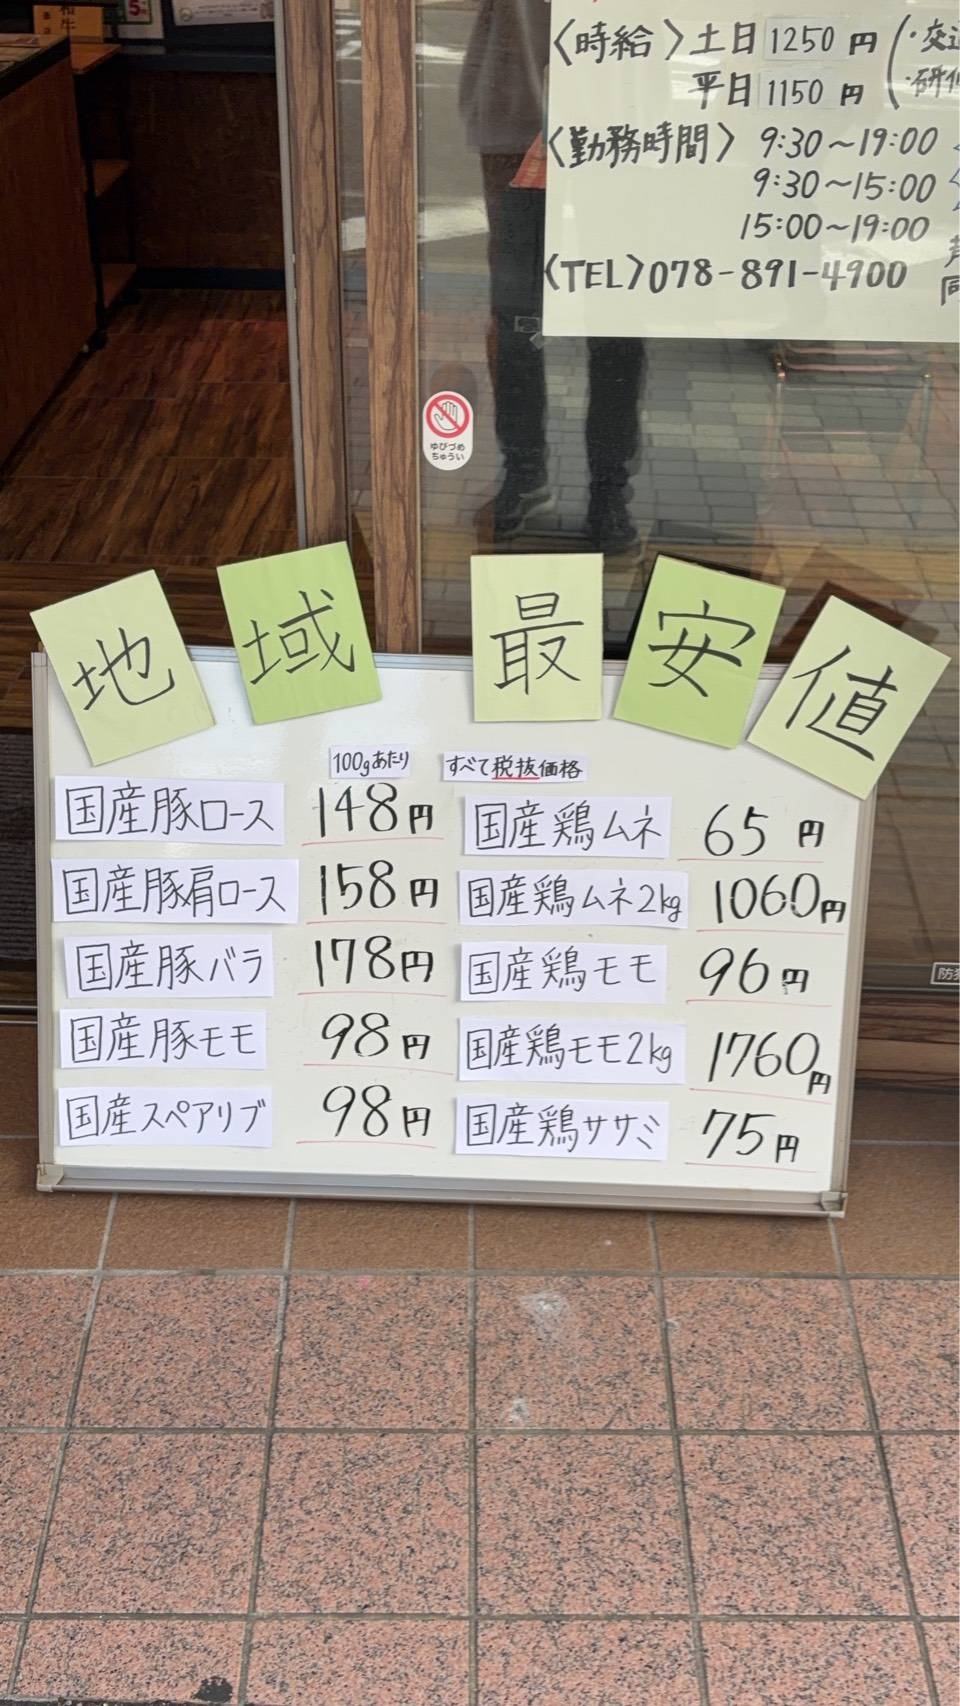 〈時給〉土日1250円(・交通
平日1150円(・研修
〈勤務時間〉9:30〜19:00
9:30〜15:00
15:00〜19:00
〈TEL〉078-891-4900
ゆびづめ
ちゅうい
地域最安値
100gあたり すべて税抜価格
国産豚ロース 148円 国産鶏ムネ 65円
国産豚肩ロース 158円 国産鶏ムネ2kg 1060円
国産豚バラ 178円 国産鶏モモ 96円
国産豚モモ 98円 国産鶏モモ2kg 1760円
国産スペアリブ 98円 国産鶏ササミ 75円